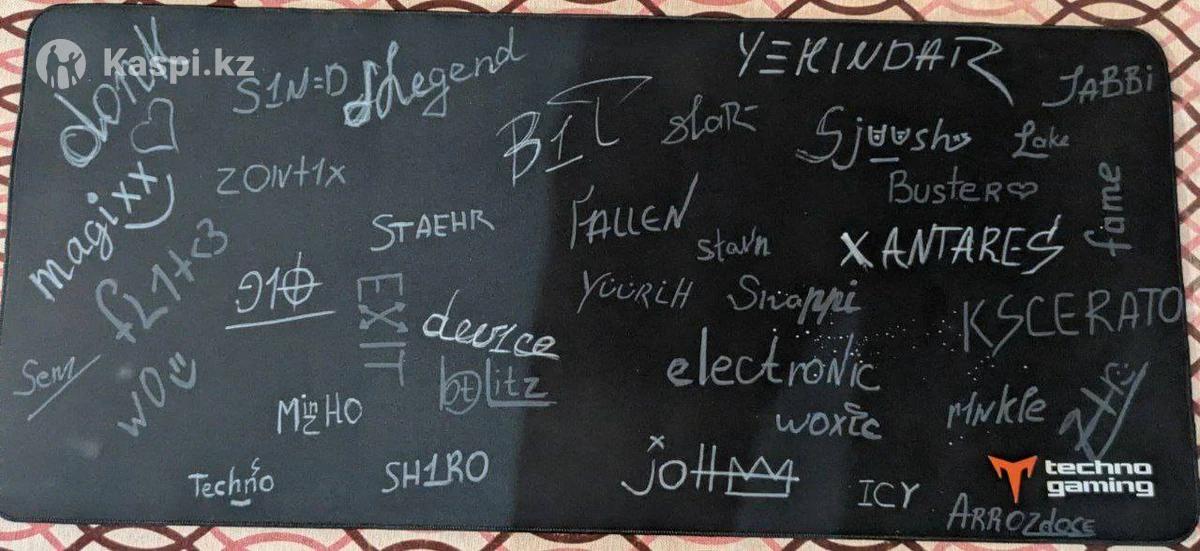 Kaspi.kz
donk
S1N=D
Legend
YEKINDAR
JABBi
B1T
slaR
Sjuush
Lake
magixx
ZONt1x
BUSTER
fame
FALLEN
STAEHR
stavn
XANTARES
fL1t<3
910
EXIT
YÜÜRIH
Snappi
KSCERATO
device
Senz
w0
blitz
electroNic
MinHO
woxic
m1NkIe
Techno
SH1RO
jottAAA
techno
gaming
ICY
ARROZdoce